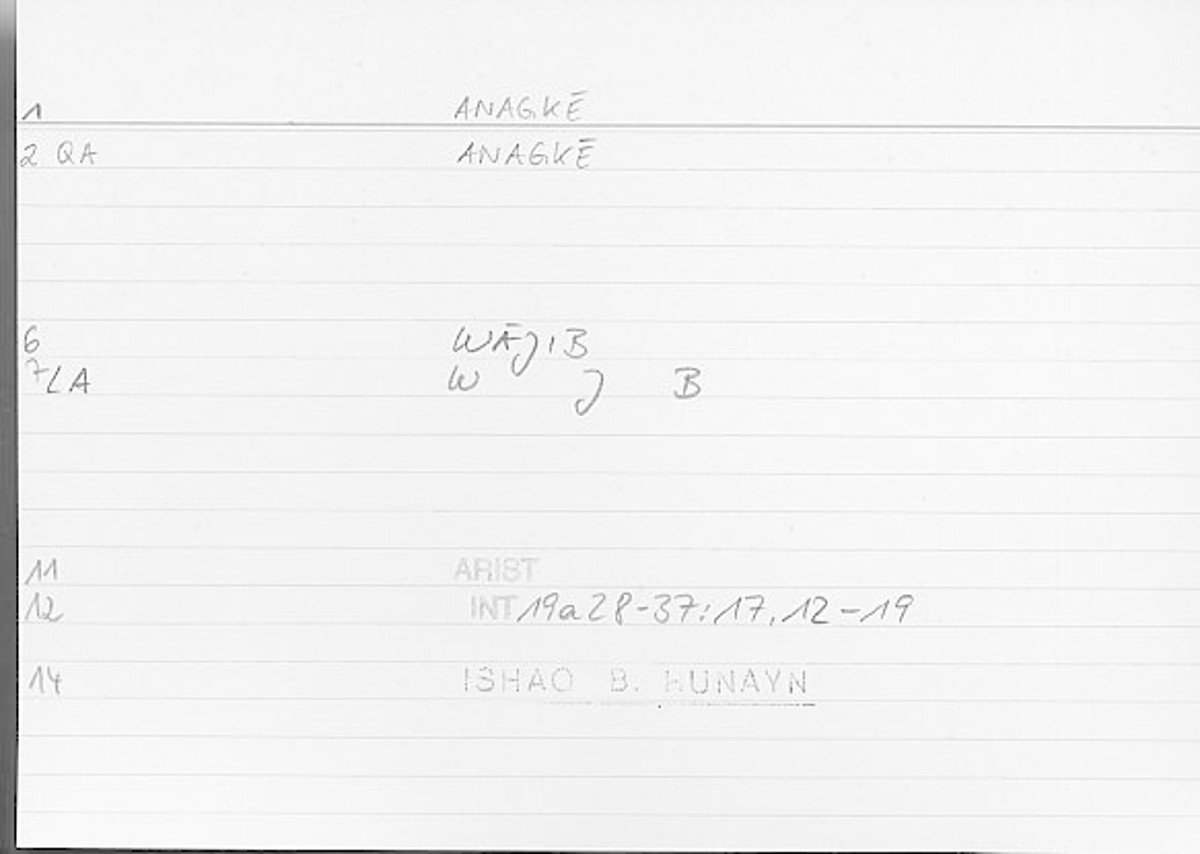 1 ANAGKĒ
2 QA ANAGKĒ
6 WĀJIB
7 LA W J B
11 ARIST
12 INT 19a28-37:17,12-19
14 ISHAQ B. HUNAYN